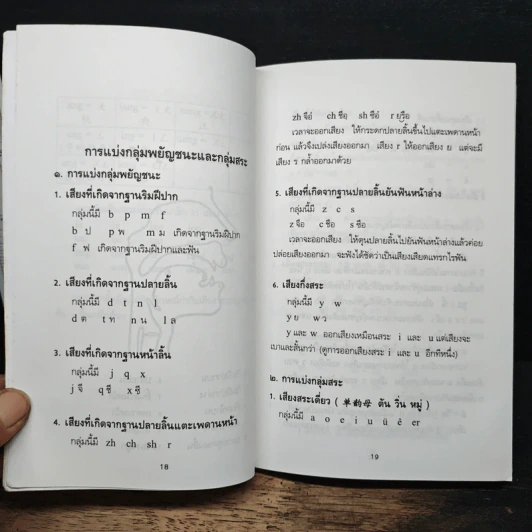 การแบ่งกลุ่มพยัญชนะและกลุ่มสระ
๑. การแบ่งกลุ่มพยัญชนะ
1. เสียงที่เกิดจากฐานริมฝีปาก
กลุ่มนี้มี b p m f
b ป p พ m ม เกิดจากฐานริมฝีปาก
f ฟ เกิดจากฐานริมฝีปากและฟัน
2. เสียงที่เกิดจากฐานปลายลิ้น
กลุ่มนี้มี d t n l
d ต t ท n น l ล
3. เสียงที่เกิดจากฐานหน้าลิ้น
กลุ่มนี้มี j q x
j จี q ชี x ซี
4. เสียงที่เกิดจากฐานปลายลิ้นแตะเพดานหน้า
กลุ่มนี้มี zh ch sh r
18
zh จือ ch ชือ sh ซือ r ยรือ
เวลาจะออกเสียง ให้กระดกปลายลิ้นขึ้นไปแตะเพดานหน้า
ก่อน แล้วจึงเปล่งเสียงออกมา เสียง r ให้ออกเสียง ย แต่จะมี
เสียง ร กล้ำออกมาด้วย
5. เสียงที่เกิดจากฐานปลายลิ้นยันฟันหน้าล่าง
กลุ่มนี้มี z c s
z จือ c ชือ s ซือ
เวลาจะออกเสียง ให้ดุนปลายลิ้นไปยันฟันหน้าล่างแล้วค่อย
ปล่อยเสียงออกมา จะฟังได้ชัดว่าเป็นเสียงเสียดแทรกไรฟัน
6. เสียงกึ่งสระ
กลุ่มนี้มี y w
y ย w ว
y และ w ออกเสียงเหมือนสระ i และ u แต่เสียงจะ
เบาและสั้นกว่า (ดูการออกเสียงสระ i และ u อีกทีหนึ่ง)
๒. การแบ่งกลุ่มสระ
1. เสียงสระเดี่ยว ( 单韵母 ตัน วิ่น หมู่ )
กลุ่มนี้มี a o e i u ü ê er
19